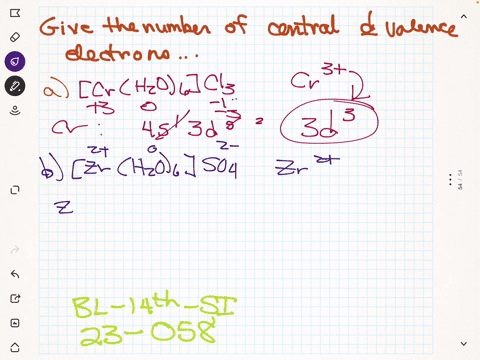 Give the number of central d valence
electrons...
a) [Cr(H2O)6]Cl3 Cr3+
+3 0 -1
Cr: 4s1 3d5 3d3
2+ 0 2-
b) [Zr(H2O)6]SO4 Zr2+
Z
BL-14th-SI
23-058
54 / 54